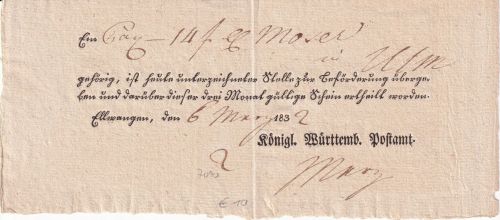 Ein Paq 14 f. Moser
in Ulm
gehörig, ist heute unterzeichneter Stelle zur Beförderung überge-
ben und darüber dieser drei Monat gültige Schein ertheilt worden.
Ellwangen, den 6 März 1832
Königl. Württemb. Postamt.
2
€ 10